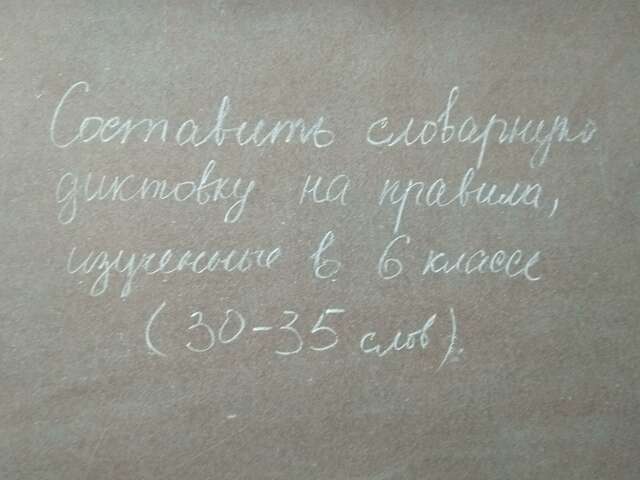 Составить словарную
диктовку на правила,
изученные в 6 классе
(30-35 слов).